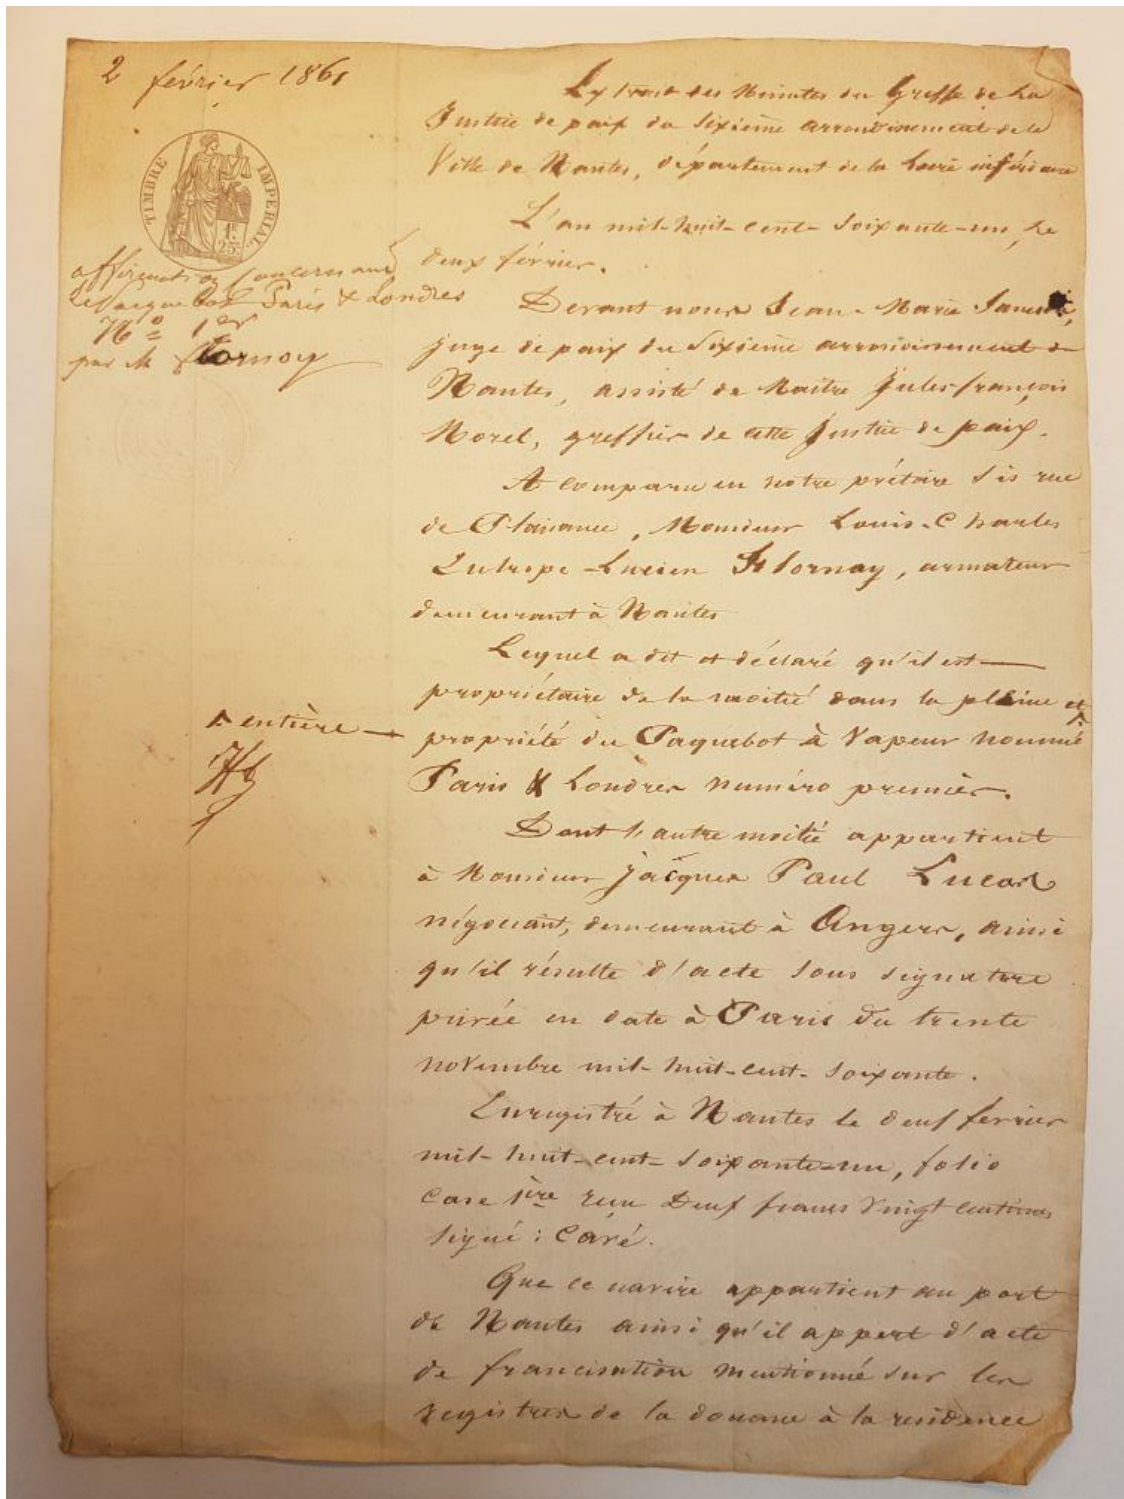 2 février 1861
TIMBRE IMPERIAL
1F
25C
affirmation concernant
le Paquebot Paris & Londres
No 1er
par M Flornoy
Extrait des Minutes du Greffe de la
Justice de paix du Sixième arrondissement de la
Ville de Nantes, département de la Loire inférieure
L'an mil-huit-cent-soixante-un, le
deux février.
Devant nous Jean-Marie
juge de paix du Sixième arrondissement de
Nantes, assisté de Maître Jules françois
Morel, greffier de cette Justice de paix.
A comparu en notre prétoire sis rue
de Plaisance, Monsieur Louis-Charles
Eutrope-Lucien Flornoy, armateur
demeurant à Nantes
Lequel a dit et déclaré qu'il est
propriétaire de la moitié dans la pleine et
entière
propriété du Paquebot à Vapeur nommé
Paris & Londres numéro premier.
Dont l'autre moitié appartient
à Monsieur Jacques Paul Lucas
négociant, demeurant à Angers, ainsi
qu'il résulte d'acte sous signature
privée en date à Paris du trente
novembre mil-huit-cent-soixante.
Enregistré à Nantes le deux février
mil-huit-cent-soixante-un, folio
case 1ère reçu Deux francs vingt centimes
signé : Caré.
Que ce navire appartient au port
de Nantes ainsi qu'il appert d'acte
de francisation mentionné sur les
registres de la douane à la residence